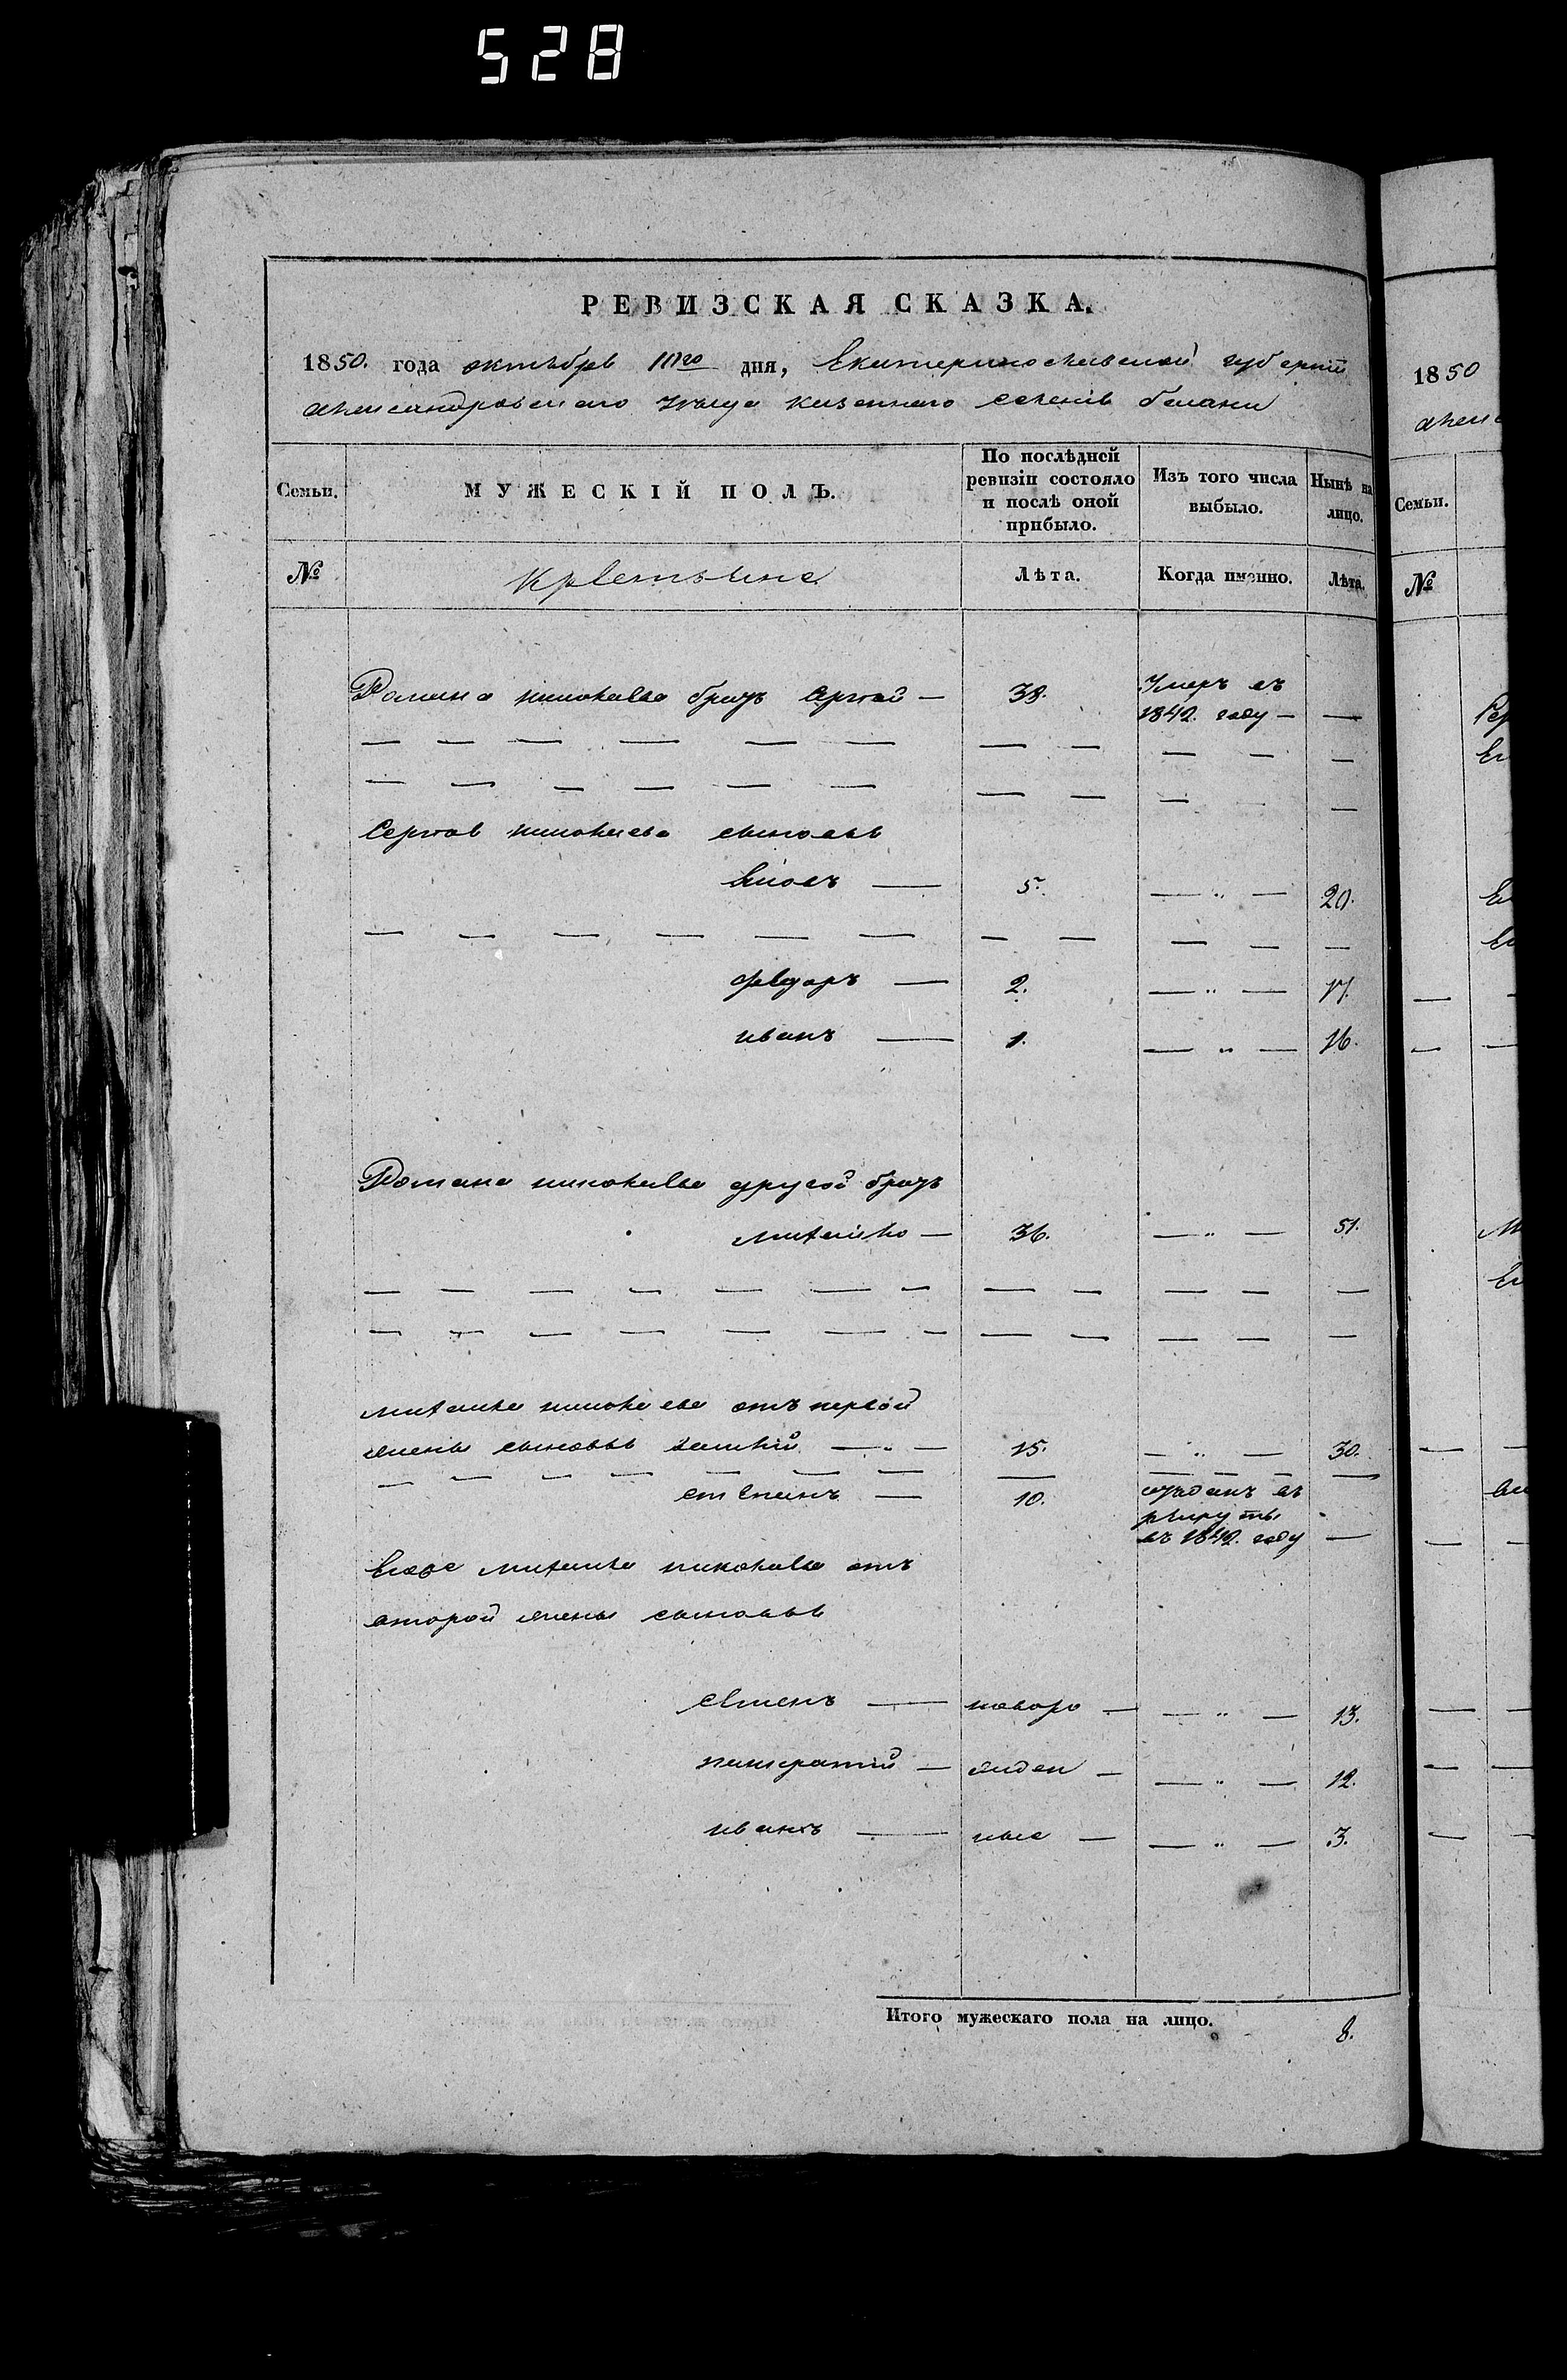 528
РЕВИЗСКАЯ СКАЗКА.
1850. года октебре 11го дня, Екатеринославской губернии
александровскаго уезда казеннаго селения белаки
Семьи.
МУЖЕСКІЙ ПОЛЪ.
По послѣдней ревизіи состояло и послѣ оной прибыло.
Изъ того числа выбыло.
Нынѣ на лицо.
№
крестьяне
Лѣта.
Когда именно.
Лѣта.
Романа николаева братъ Сергей — 38. Умеръ въ
1842. году — —
Сергея николаева сыновье
5. — " — 20.
федоръ — 2. — " — 17.
иванъ — 1. — " — 16.
Романа николаева другой братъ
михайло — 36. — " — 51.
михайла николаева отъ первой
жены сыновье — " — 15. — " — 30.
степанъ — 10. отданъ въ
рекруты
въ 1842. году —
Егоже михайла николаева отъ
второй жены сыновье
семенъ — новоро — — " — 13.
панкратий — жден — — " — 12.
иванъ — ные — — " — 3.
Итого мужескаго пола на лицо. 8.
1850
Семьи.
№